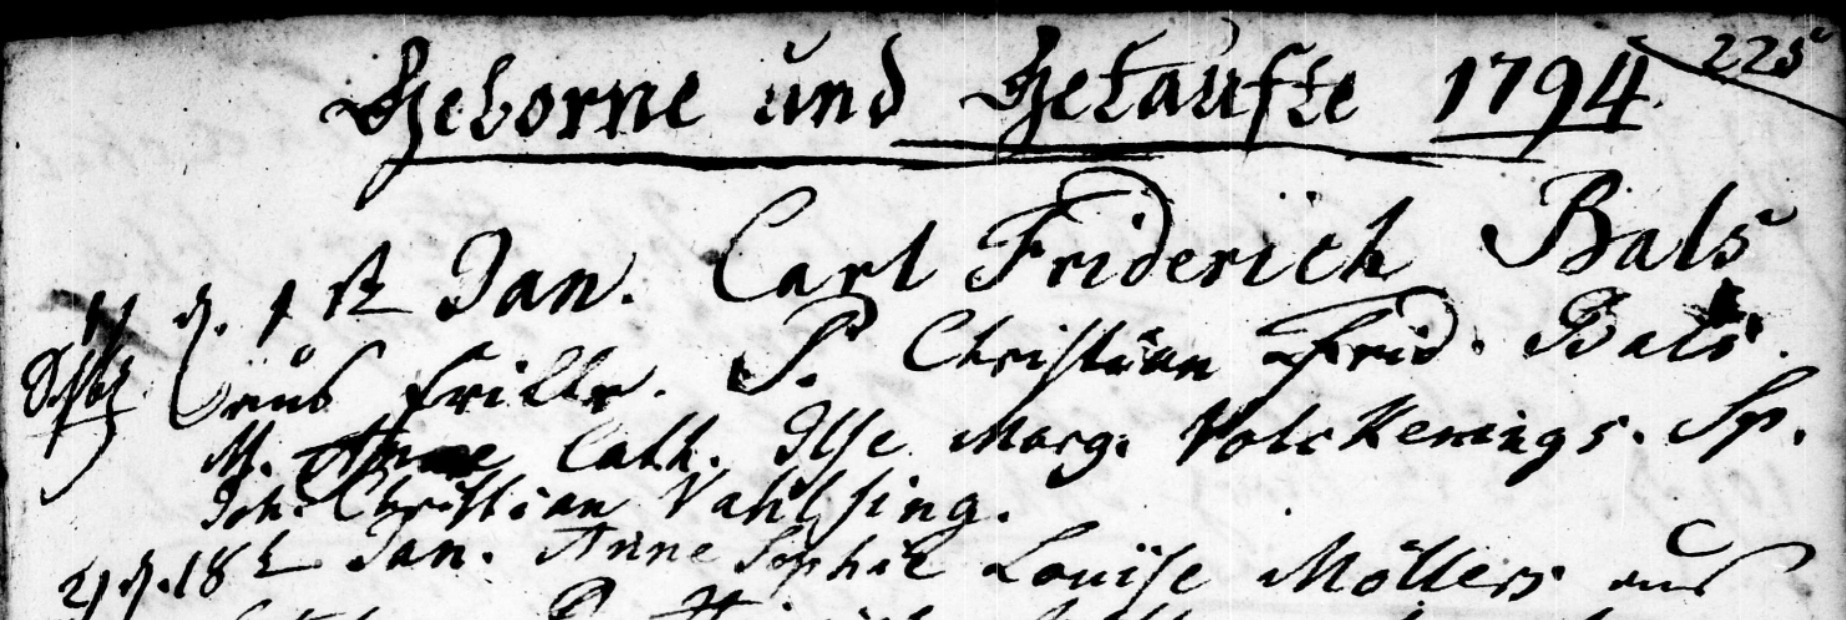 Geborne und Getaufte 1794. 225
1) d. 1st Jan. Carl Friderich Bals
aus Frille. P. Christian Frid. Bals.
M. Anne Cath. Ilse Marg. Volckenings. Sp.
Joh. Christian Vahlsing.
2) d. 18t Jan. Anne Sophie Louise Möllers aus